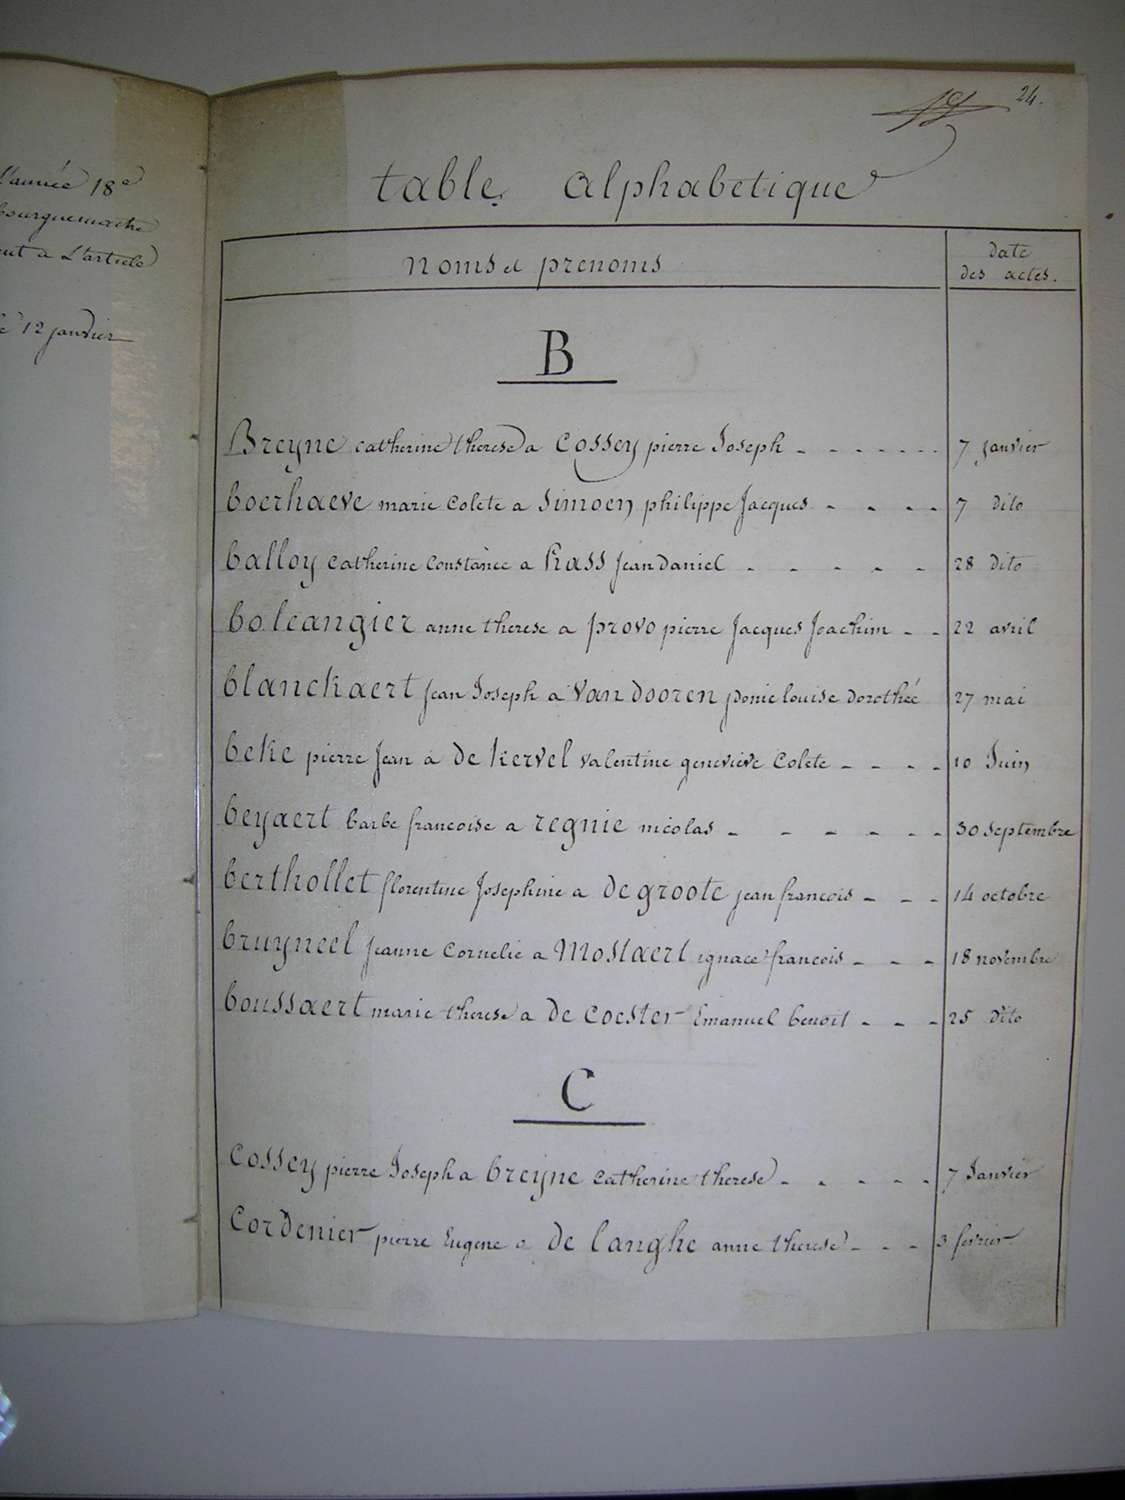 l'année 18e
bourguemaître
à L'article
12 janvier
24.
table alphabetique
noms et prenoms
date
des actes.
B
Breyne catherine therese a Cossey pierre Joseph - - - - - - - 7 Janvier
boerhaeve marie Colete a Simoen philippe Jacques - - - - 7 dito
balloy catherine Constance a Rass Jean Daniel - - - - - 28 dito
boleangier anne therese a provo pierre Jacques Joachim - - 22 avril
blanckaert Jean Joseph a Van Dooren louise Dorothée 27 mai
beke pierre Jean a de kervel Valentine genevieve Colete - - - - 10 Juin
beyaert barbe francoise a regnie nicolas - - - - - - 30 septembre
berthollet florentine Josephine a De groote jean francois - - - 14 octobre
bruyneel Jeanne Cornelie a Mostaert ignace francois - - - 18 novembre
boussaert marie therese a De Coester Emanuel benoit - - - 25 dito
C
Cossey pierre Joseph a breyne Catherine therese - - - - - 7 Janvier
CorDenier pierre Eugene a De langhe anne therese - - - 3 fevrier